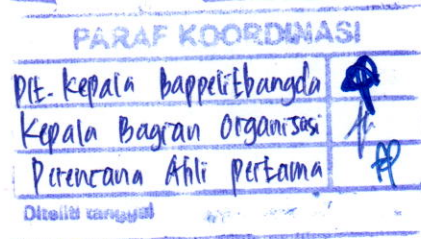 PARAF KOORDINASI
Plt. Kepala Bappelitbangda
Kepala Bagian Organisasi
Perencana Ahli Pertama
Diteliti tanggal